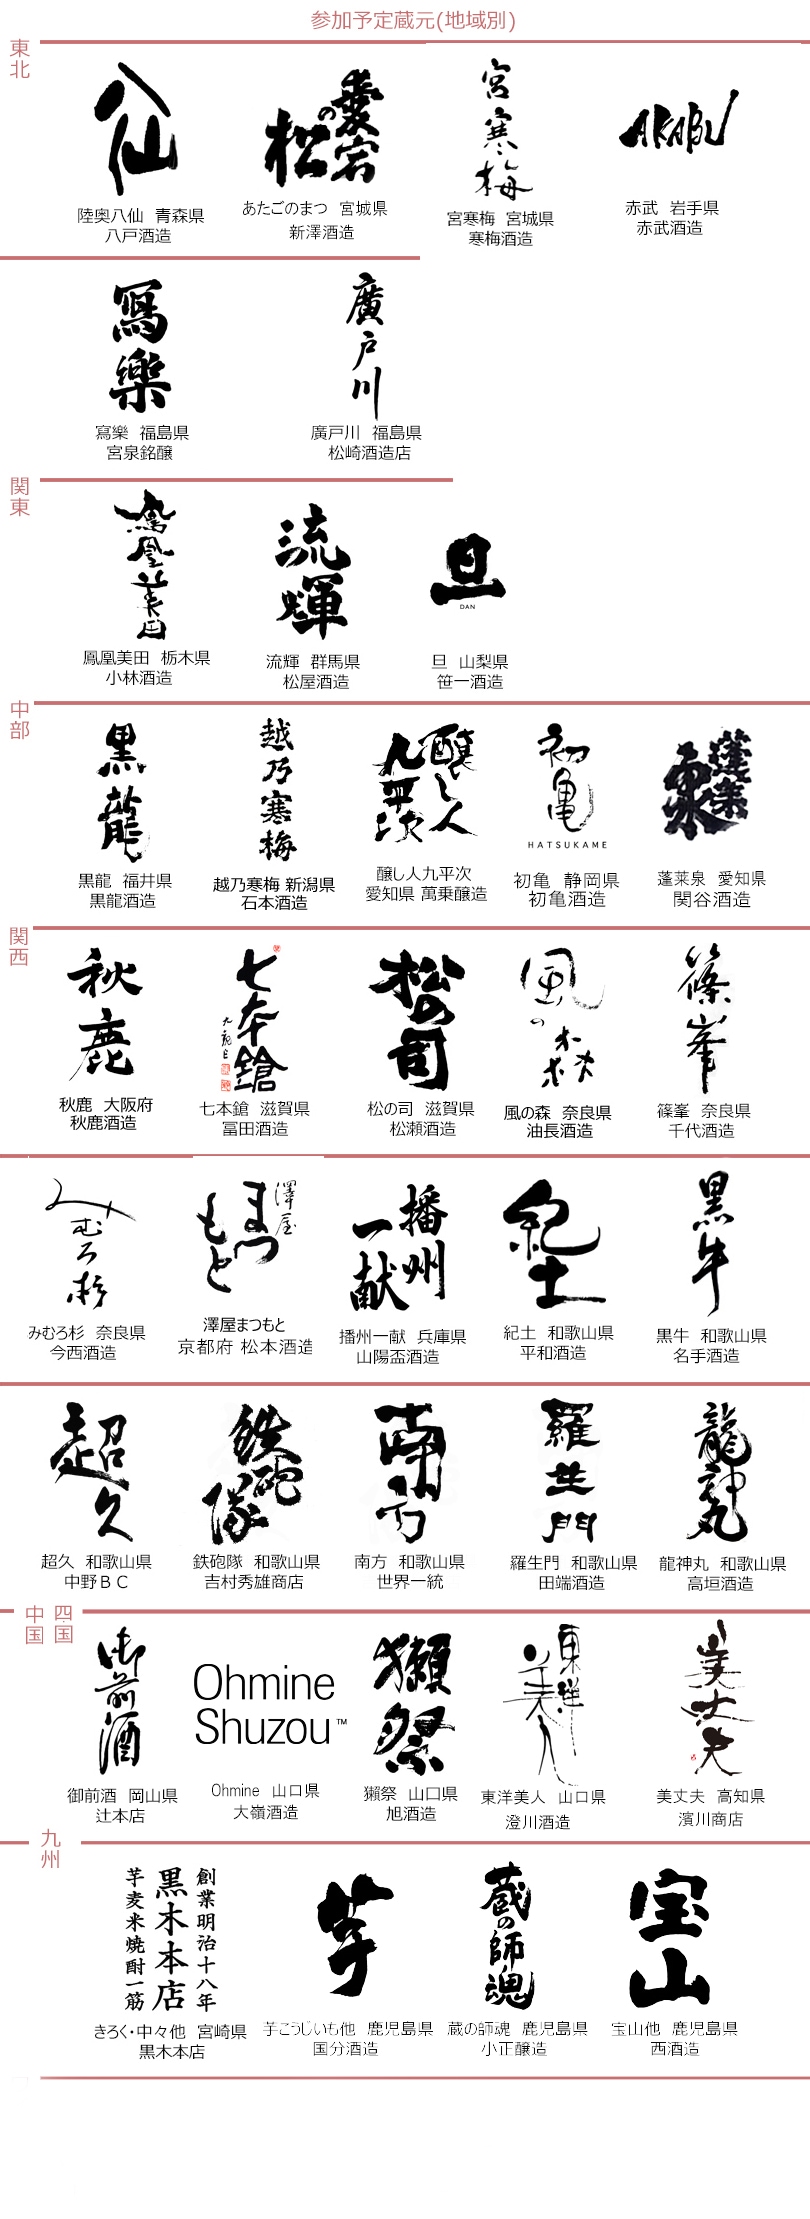 参加予定蔵元(地域別)
東北
八仙
陸奥八仙 青森県
八戸酒造
愛宕の松
あたごのまつ 宮城県
新澤酒造
宮寒梅
宮寒梅 宮城県
寒梅酒造
AKABU
赤武 岩手県
赤武酒造
寫樂
寫樂 福島県
宮泉銘醸
廣戸川
廣戸川 福島県
松崎酒造店
関東
鳳凰美田
鳳凰美田 栃木県
小林酒造
流輝
流輝 群馬県
松屋酒造
旦
DAN
旦 山梨県
笹一酒造
中部
黒龍
黒龍 福井県
黒龍酒造
越乃寒梅
越乃寒梅 新潟県
石本酒造
醸し人
九平次
醸し人九平次
愛知県 萬乗醸造
初亀
HATSUKAME
初亀 静岡県
初亀酒造
蓬莱
泉
蓬莱泉 愛知県
関谷酒造
関西
秋鹿
秋鹿 大阪府
秋鹿酒造
七本鎗
七本鎗 滋賀県
冨田酒造
松の司
松の司 滋賀県
松瀬酒造
風の森
風の森 奈良県
油長酒造
篠峯
篠峯 奈良県
千代酒造
みむろ杉
みむろ杉 奈良県
今西酒造
澤屋
まつ
もと
澤屋まつもと
京都府 松本酒造
播州
一献
播州一献 兵庫県
山陽盃酒造
紀土
紀土 和歌山県
平和酒造
黒牛
黒牛 和歌山県
名手酒造
超久
超久 和歌山県
中野ＢＣ
鉄砲隊
鉄砲隊 和歌山県
吉村秀雄商店
南方
南方 和歌山県
世界一統
羅生門
羅生門 和歌山県
田端酒造
龍神丸
龍神丸 和歌山県
高垣酒造
中国
四国
御前酒
御前酒 岡山県
辻本店
Ohmine
Shuzou™
Ohmine 山口県
大嶺酒造
獺祭
獺祭 山口県
旭酒造
東洋
美人
東洋美人 山口県
澄川酒造
美丈夫
美丈夫 高知県
濱川商店
九州
創業明治十八年
黒木本店
芋麦米焼酎一筋
きろく・中々他 宮崎県
黒木本店
芋
芋こうじいも他 鹿児島県
国分酒造
蔵の師魂
蔵の師魂 鹿児島県
小正醸造
宝山
宝山他 鹿児島県
西酒造